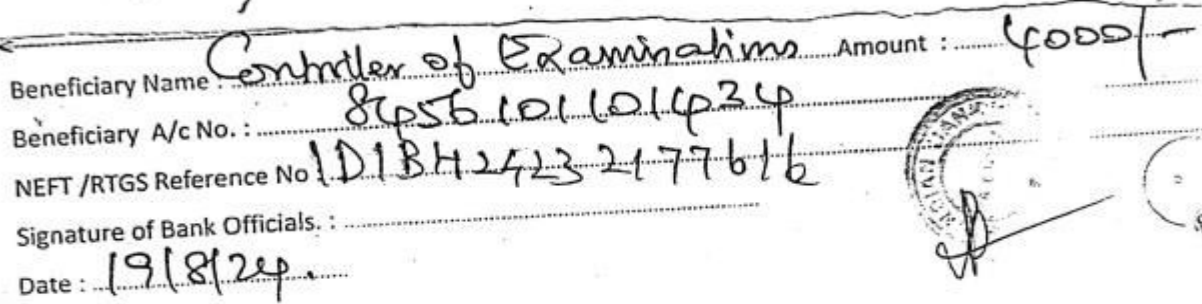 Beneficiary Name : Controller of Examinations Amount : 4000/-
Beneficiary A/c No. : 8456101101434
NEFT /RTGS Reference No IDIBH24232177616
Signature of Bank Officials. :
Date : 19/8/24.